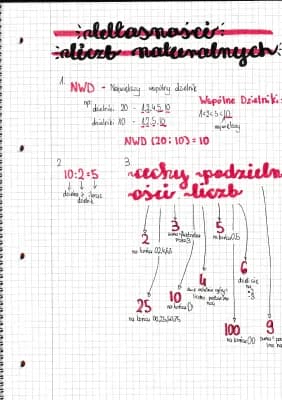 Własności
liczb naturalnych
1.
NWD - Największy wspólny dzielnik
np:
dzielniki 20 - 1,2,4,5,10
dzielniki 10 - 1,2,5,10
Wspólne Dzielniki:
1<2<5<10
największy
NWD (20; 10) = 10
2.
10:2=5
dzielna
dzielnik
iloraz
3.
cechy podzieln
ości liczb
2
na końcu 0,2,4,6,8
3
suma cyfr
5
na końcu 0,5
4
6
dzieli się
25
na końcu 00,25,50,75
10
na końcu 0
100
na końcu 00
9
suma